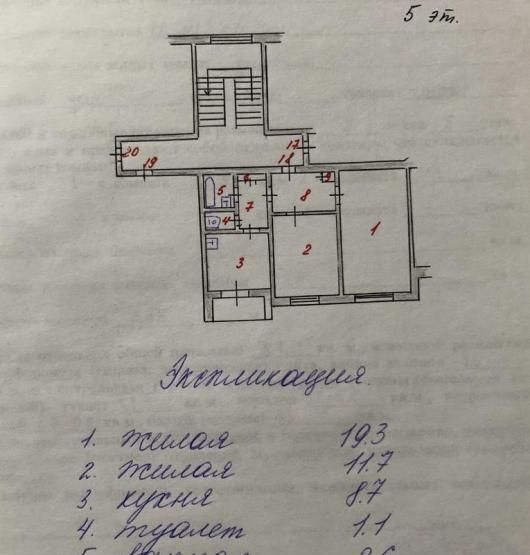 5 эт.
20
19
17
18
5
6
7
8
9
4
3
2
1
Экспликация.
1. жилая 19.3
2. жилая 11.7
3. кухня 8.7
4. туалет 1.1
5.